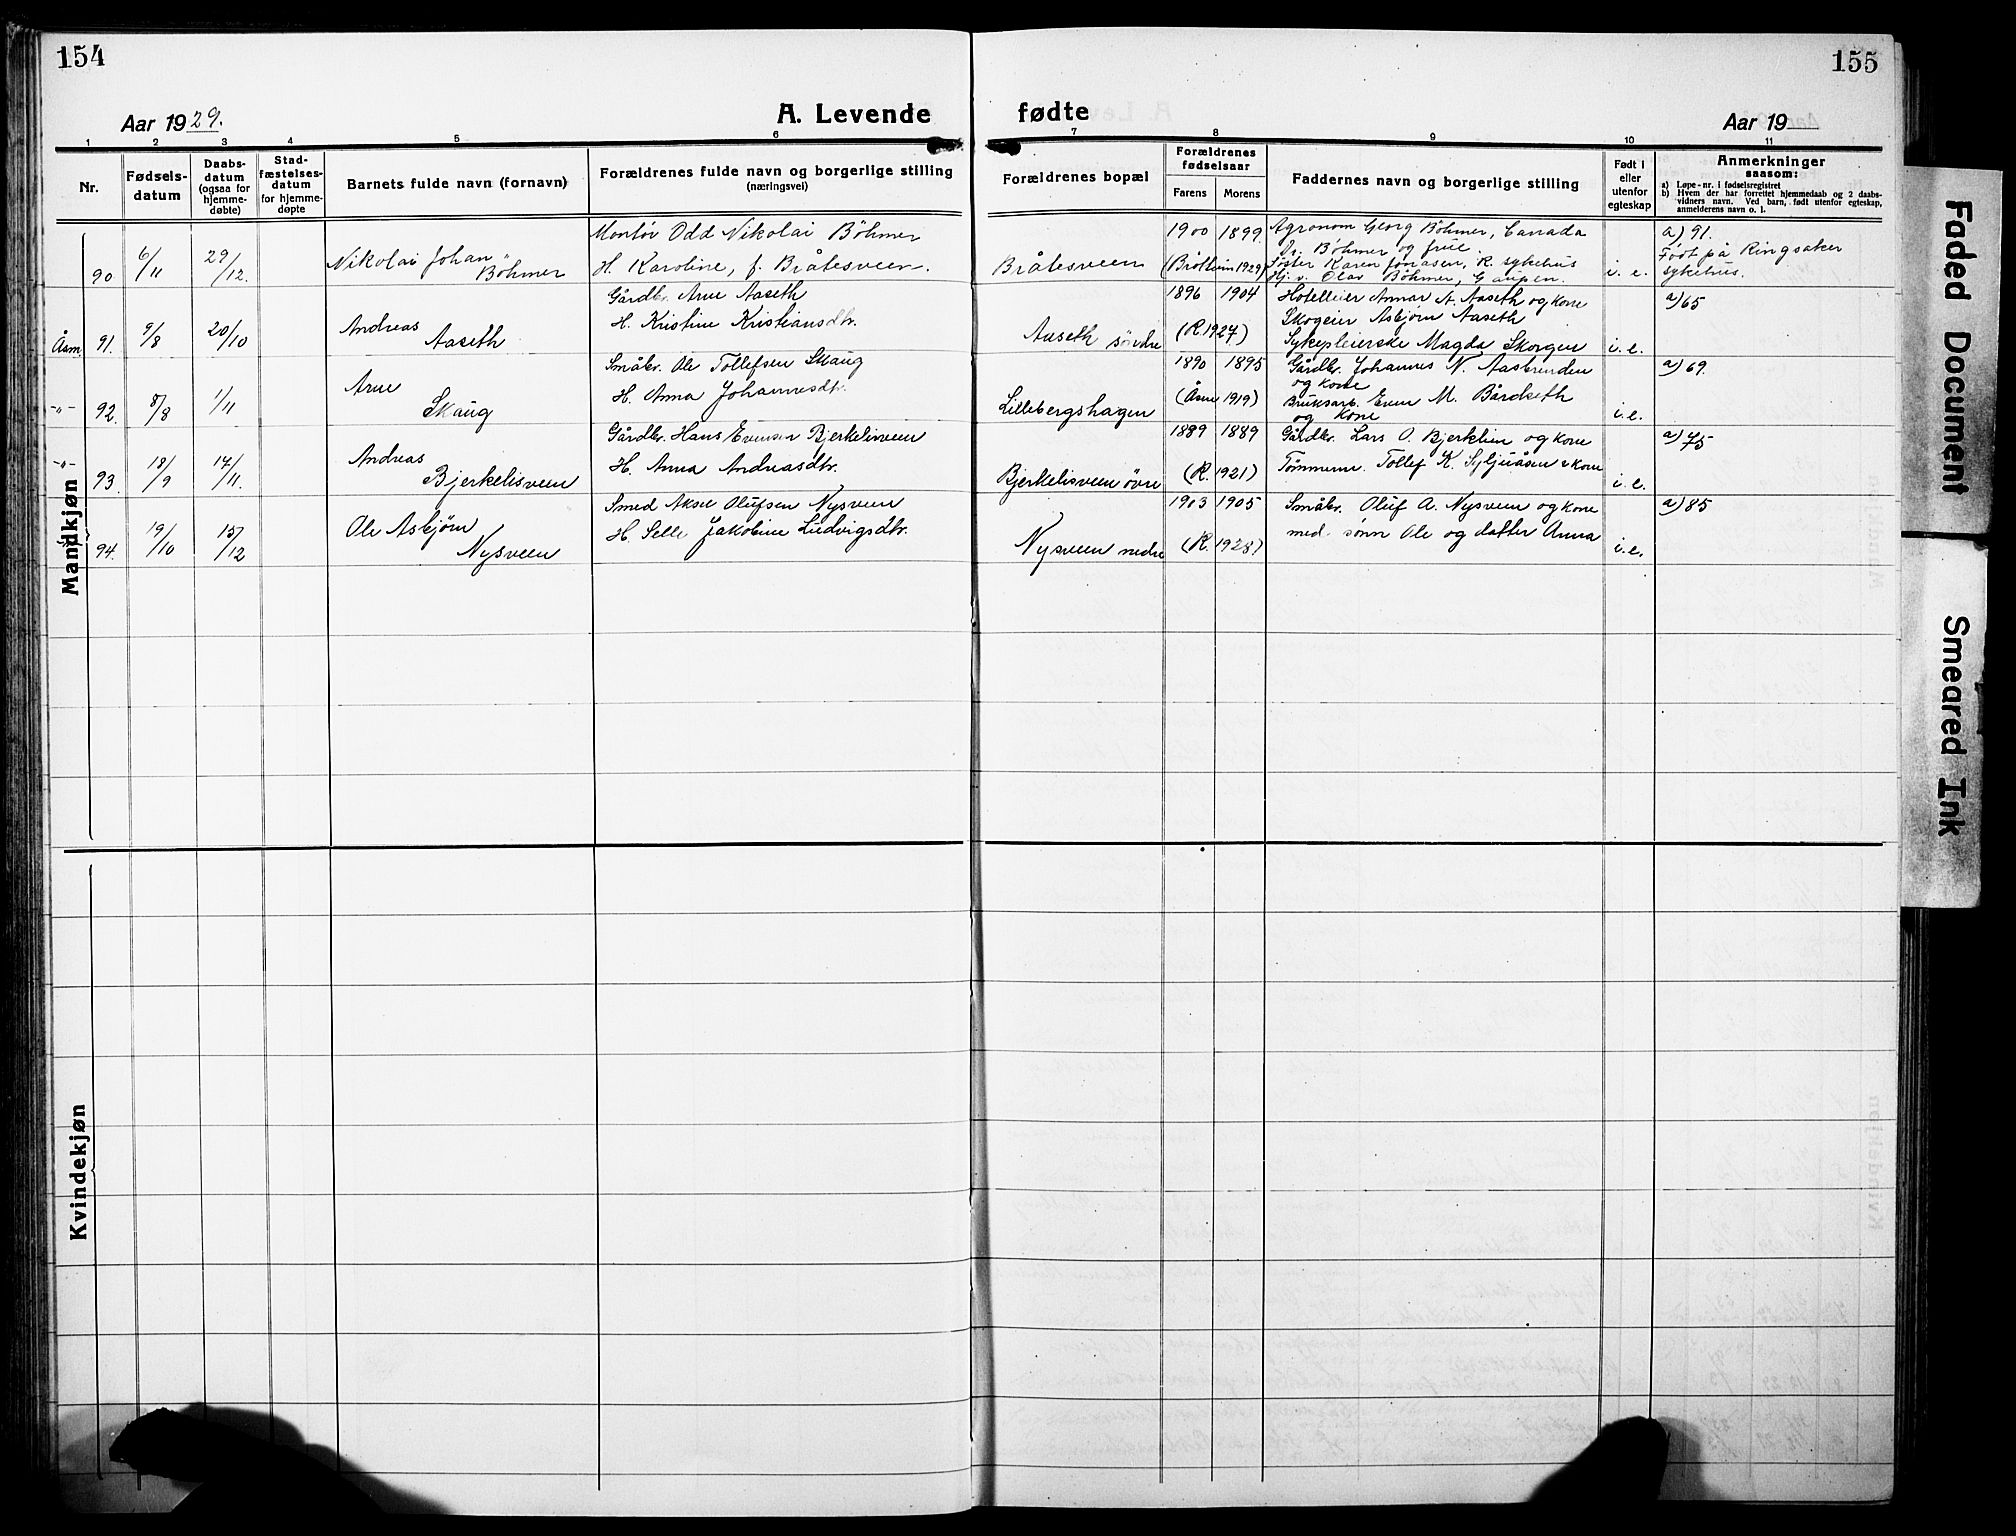 154
155
Aar 1929.
A. Levende
fødte
Aar 19
1 2 3 4 5 6 7 8 9 10 11
Nr.
Fødsels-
datum
Daabs-
datum
(ogsaa for
hjemme-
døbte)
Stad-
fæstelses-
datum
for hjemme-
døpte
Barnets fulde navn (fornavn)
Forældrenes fulde navn og borgerlige stilling
(næringsvei)
Forældrenes bopæl
Forældrenes
fødselsaar
Farens Morens
Faddernes navn og borgerlige stilling
Født i
eller
utenfor
egteskap
Anmerkninger
saasom:
a) Løpe-nr. i fødselsregistret
b) Hvem der har forrettet hjemmedaab og 2 daabs-
vidners navn. Ved barn, født utenfor egteskap,
anmelderens navn o. l.
Mandkjøn
90 6/11 29/12.
Nikolai Johan
Böhmer
Montør Odd Nikolai Böhmer
H. Karoline, f. Bråtesveen.
Bråtesveen
1900 1899.
(Brøttum 1929)
Agronom Georg Böhmer, Canada
Dr. Böhmer og frue.
Søster Karen Jonasen, R. sykehus
Hj. v. Olav Böhmer, Gaupen.
i. e.
a) 91.
Født på Ringsaker
sykehus.
Åsm. 91. 9/8 20/10
Andreas
Aaseth
Gårdbr. Arne Aaseth
H. Kristine Kristiansdtr.
Aaseth søndre
1896 1904
(R. 1927)
Hotelleier Annar A. Aaseth og kone
Skogeier Asbjørn Aaseth
Sykepleierske Magda Skorgen
i. e.
a) 65
-"- 92. 8/8 1/11
Arne
Skaug
Småbr. Ole Tollefsen Skaug
H. Anna Johannesdtr.
Lillebergshagen
1890 1895
(Åsm 1919)
Gårdbr. Johannes N. Aasbrenden
og kone
Bruksarb. Even M. Bårdseth
og kone
i. e.
a) 69.
-"- 93. 18/9 17/11.
Andreas
Bjerkelisveen
Gårdbr. Hans Evensen Bjerkelisveen
H. Anna Andreasdtr.
Bjerkelisveen øvre
1889 1889
(R. 1921)
Gårdbr. Lars O. Bjerklien og kone
Tømmerm. Tollef K. Syljuåsen & kone
i. e.
a) 75
94. 19/10 15/12
Ole Asbjørn
Nysveen
Smed Aksel Olufsen Nysveen
H. Selle Jakobine Ludvigsdtr.
Nysveen nedre
1903 1905
(R. 1928.)
Småbr. Oluf A. Nysveen og kone
med sønn Ole og datter Anna
i. e.
a) 85
Kvindekjøn
Faded Document
Smeared Ink